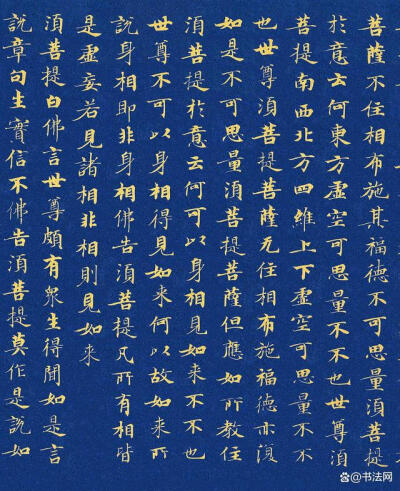 菩薩不住相布施其福德不可思量須菩提
於意云何東方虛空可思量不不也世尊須
菩提南西北方四維上下虛空可思量不不
也世尊須菩提菩薩无住相布施福德亦復
如是不可思量須菩提菩薩但應如所教住
須菩提於意云何可以身相見如来不不也
世尊不可以身相得見如来何以故如来所
說身相即非身相佛告須菩提凡所有相皆
是虛妄若見諸相非相則見如来
須菩提白佛言世尊頗有衆生得聞如是言
說章句生實信不佛告須菩提莫作是說如
@书法网